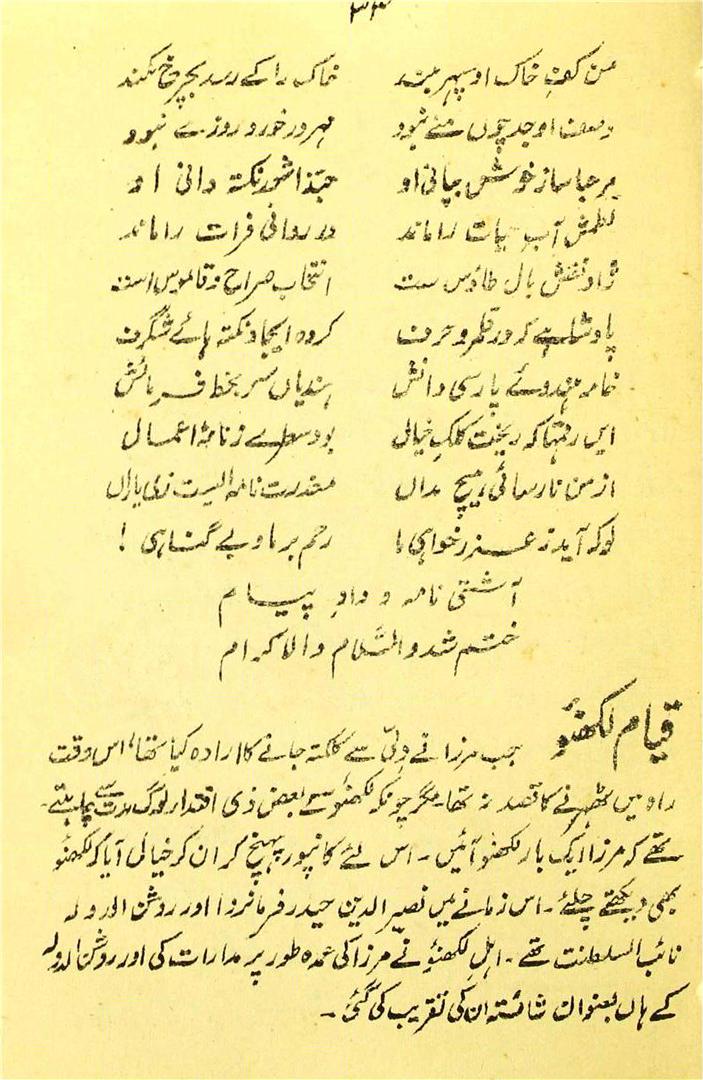 ۳۴
من کفِ خاک او سپہر بلند خاک را کے رسد بچرخ کمند
وصف او حد چوں منے نبود مہر در خورد روزنے نبود
مرحبا ساز خوش بیانی او حبذا شور نکتہ دانی او
نظمش آب حیات را ماند در روانی فرات را ماند
نثر او نقش بال طاؤس ست انتخاب صراح و قاموس است
پادشاہے کہ در قلمرو حرف کردہ ایجاد نکتہ ہائے شگرف
خامہ ہندوئے پارسی دانش ہندیاں سر بخط فرمانش
ایں رقمہا کہ ریخت کلکِ خیال بود سطرے ز نامۂ اعمال
از من نارسائی ہیچ مداں معذرت نامہ ایست زی یاراں
بوکہ آید ز عذر خواہی ما رحم بر ما و بے گناہی !
آشتی نامہ و دادِ پیام
ختم شد والسّلام والاکرام
قیام لکھنؤ جب مرزا نے دلّی سے کلکتہ جانے کا ارادہ کیا تھا، اس وقت
راہ میں ٹھہرنے کا قصد نہ تھا۔ مگر چونکہ لکھنؤ کے بعض ذی اقتدار لوگ مدت سے چاہتے
تھے کہ مرزا ایک بار لکھنؤ آئیں۔ اس لئے کانپور پہنچ کر ان کو خیال آیا کہ لکھنؤ
بھی دیکھتے چلئے۔ اس زمانے میں نصیر الدین حیدر فرمانروا اور روشن الدولہ
نائب السلطنت تھے۔ اہل لکھنؤ نے مرزا کی عمدہ طور پر مدارات کی اور روشن الدولہ
کے ہاں بعنوان شائستہ ان کی تقریب کی گئی۔